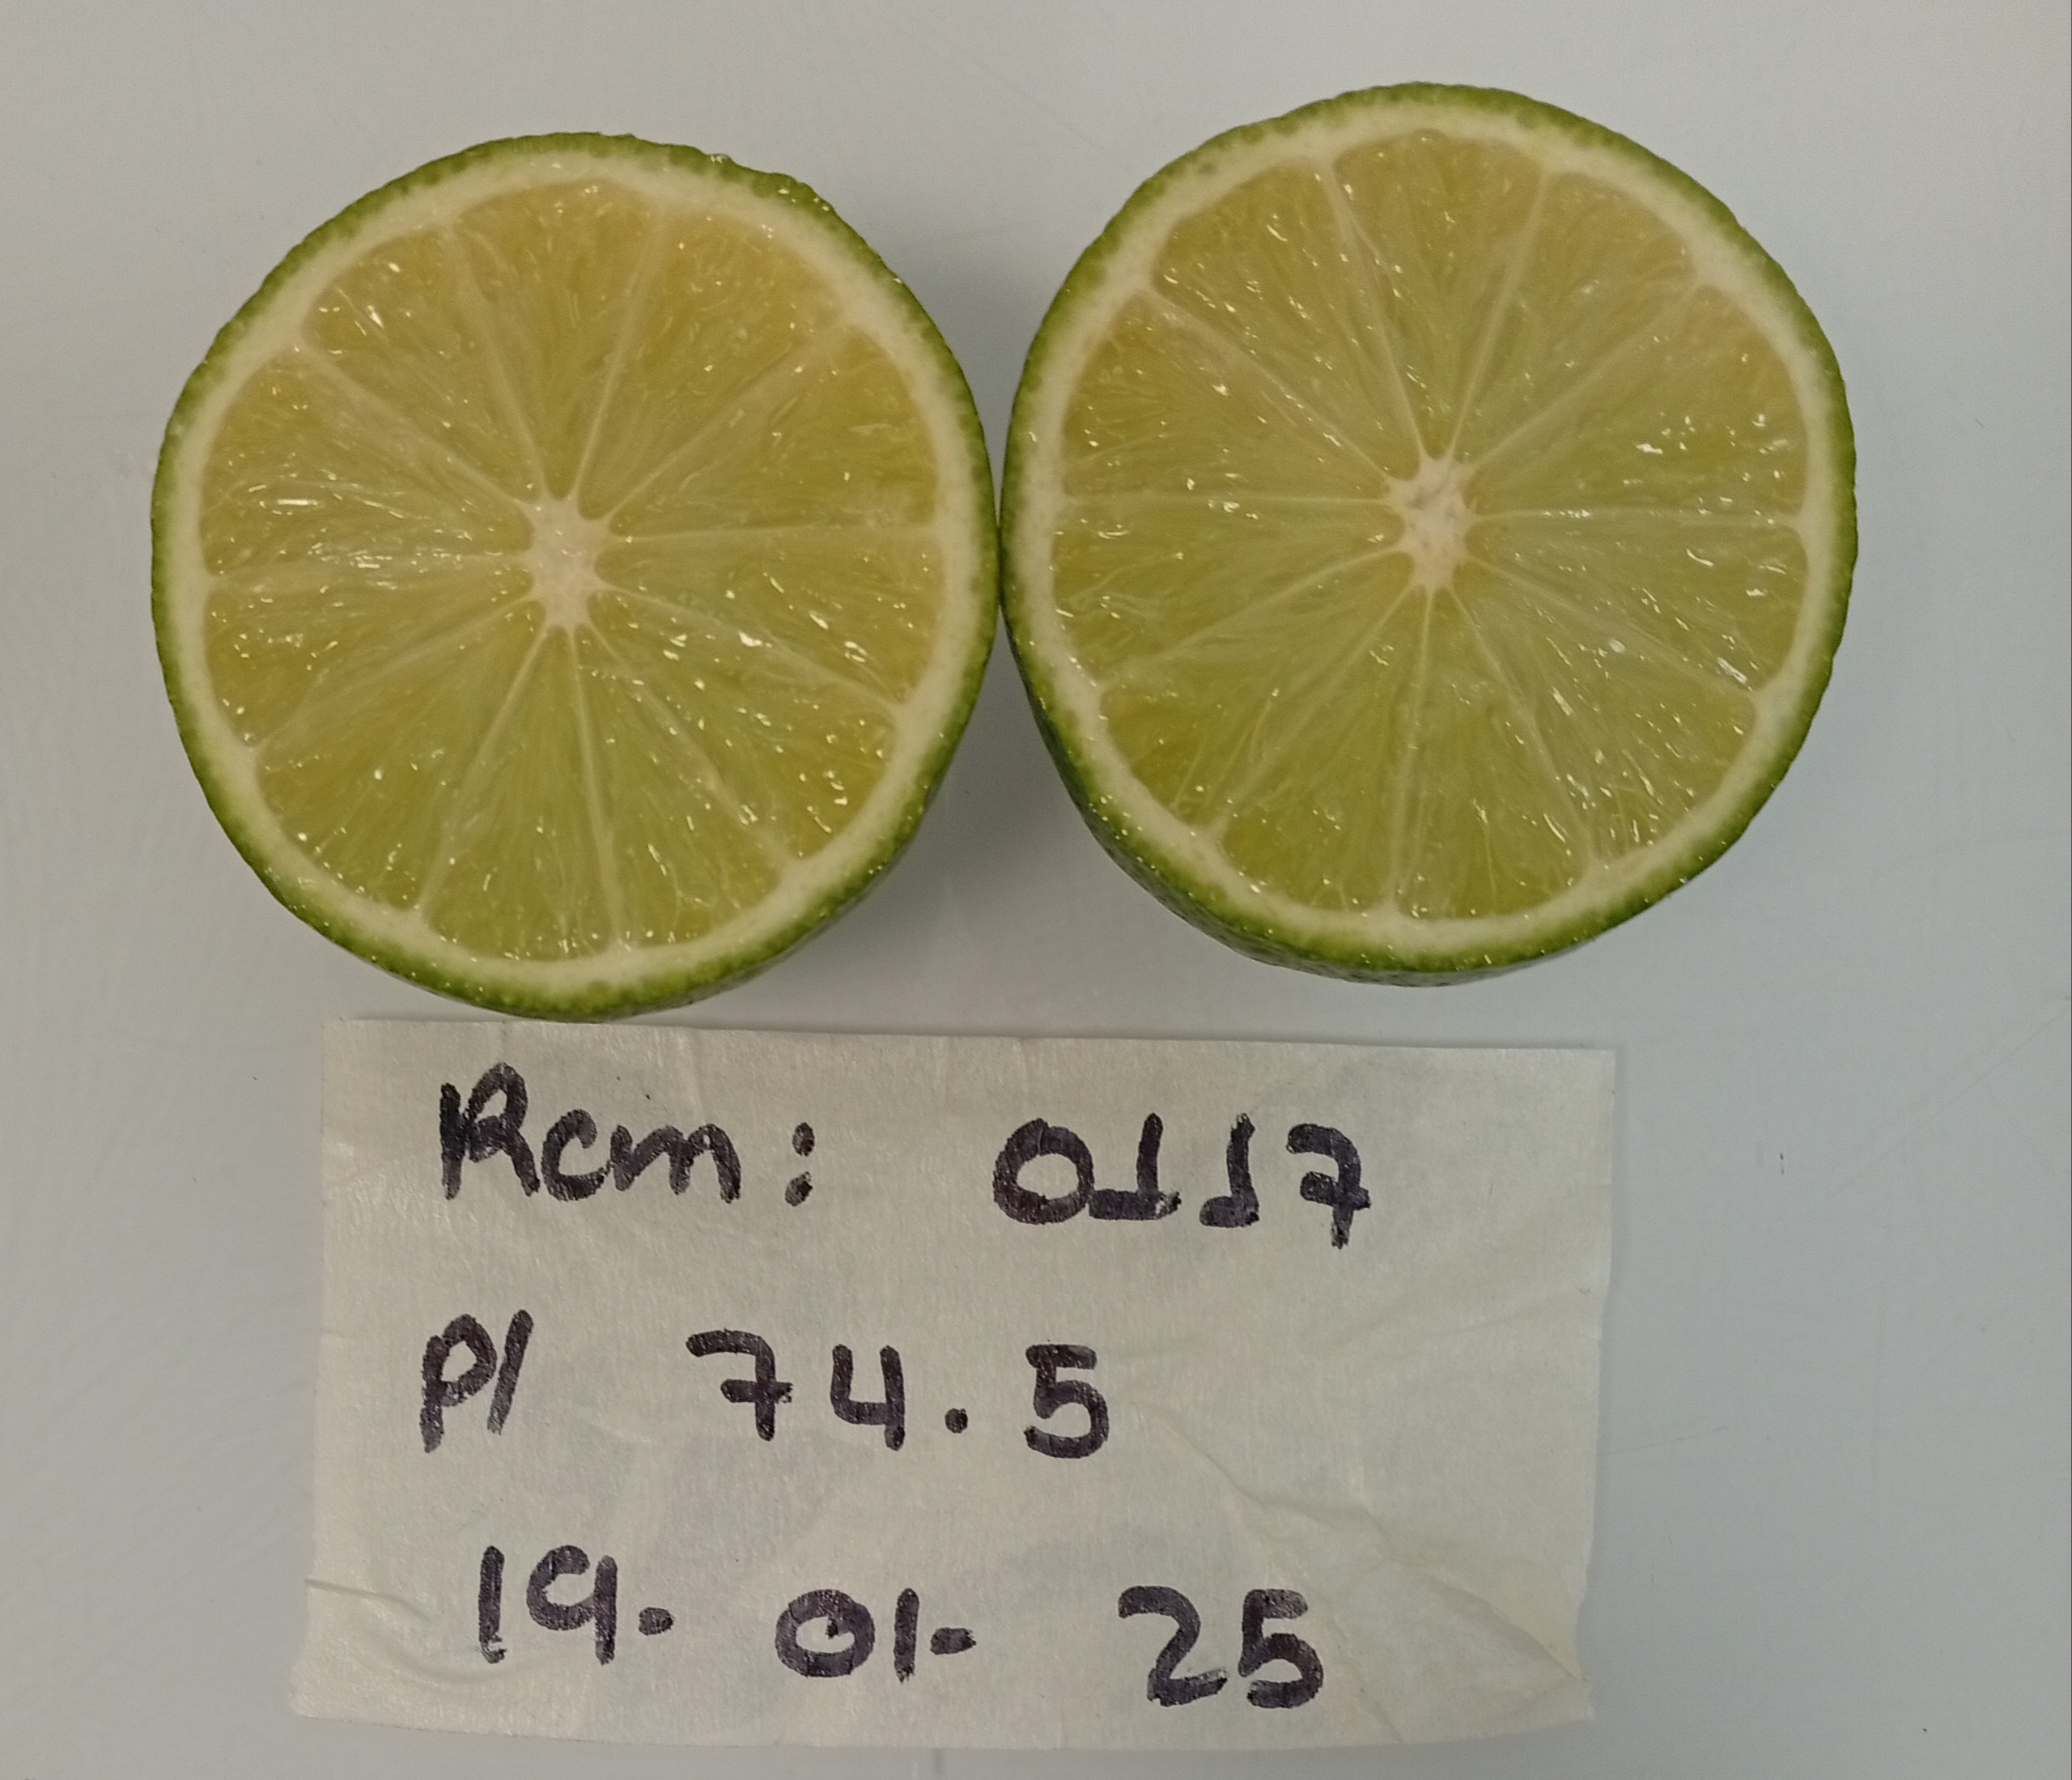 Rcm: 0117
Pl 74.5
19. 01- 25